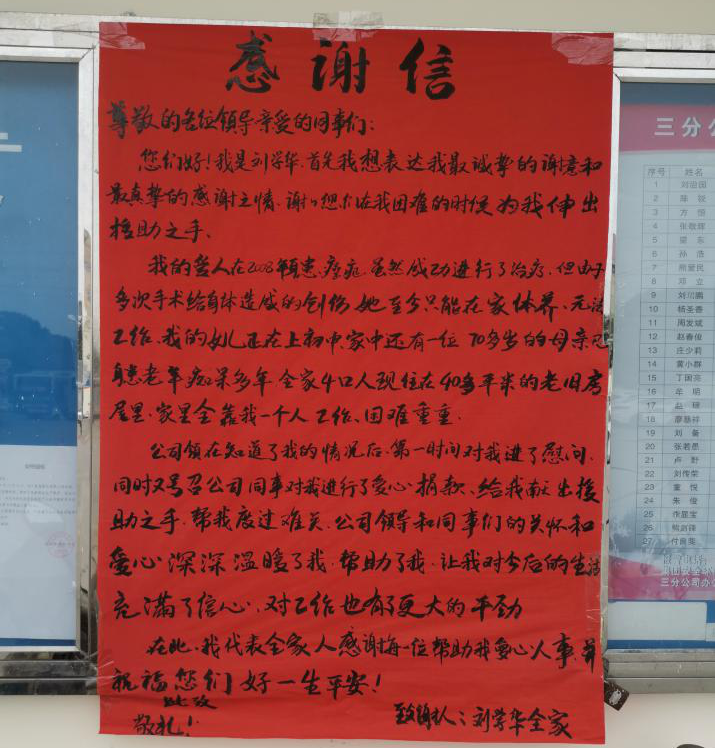 感谢信
尊敬的各位领导亲爱的同事们:
您们好!我是刘学华,首先我想表达我最诚挚的谢意和
最真挚的感谢之情、谢谢您们在我困难的时候为我伸出
援助之手、
我的爱人在2008年患癌症,虽然成功进行了治疗,但由于
多次手术给身体造成的创伤她至今只能在家休养、无法
工作、我的女儿正在上初中家中还有一位70多岁的母亲
身患老年痴呆多年 全家4口人现住在40多平米的老旧房
屋里、家里全靠我一个人工作、困难重重.
公司领在知道了我的情况后、第一时间对我进了慰问,
同时又号召公司同事对我进行了爱心捐款、给我献出援
助之手、帮我度过难关、公司领导和同事们的关怀和
爱心深深温暖了我、帮助了我、让我对今后的生活
充满了信心、对工作也有了更大的干劲
在此、我代表全家人感谢每一位帮助我爱心人事并
祝福您们好一生平安!
此致
敬礼!
致谢人:刘学华全家
三分公
序号 姓名
1
2 陈锐
3 方恒
4 张敬辉
5
6 孙浩
7 熊爱民
8 邓立
9 刘川鹏
10 杨圣善
11 周发斌
12 赵春俊
13 庄少莉
14 黄小群
15 丁国亮
16 牟明
17 赵
18
19 刘备
20 张若愚
21 卢野
22 刘传荣
23 童悦
24 朱俊
25 作显宝
26
27 付良荣
三分公司办